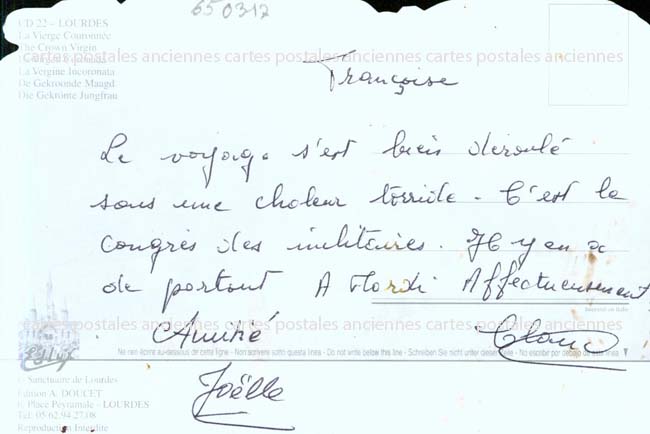 650317
CD 22 - LOURDES
La Vierge Couronnée
The Crown Virgin
La Vergine Incoronata
De Gekroonde Maagd
Die Gekrönte Jungfrau
cartes postales anciennes cartes postales anciennes cartes postales anciennes
Françoise
Le voyage s'est bien déroulé
sous une chaleur torride. C'est le
congrès des militaires. Il y en a
de partout A Mardi Affectueusement
cartes postales anciennes cartes postales anciennes cartes postales anciennes
André
Ne rien écrire au-dessous de cette ligne - Non scrivere sotto questa linea - Do not write below this line - Schreiben Sie nicht unter dieser Linie - No escribir por debajo de esta línea
Joëlle
Sanctuaire de Lourdes
Edition A. DOUCET
Place Peyramale - LOURDES
Tél: 05.62.94.27.08
Reproduction Interdite